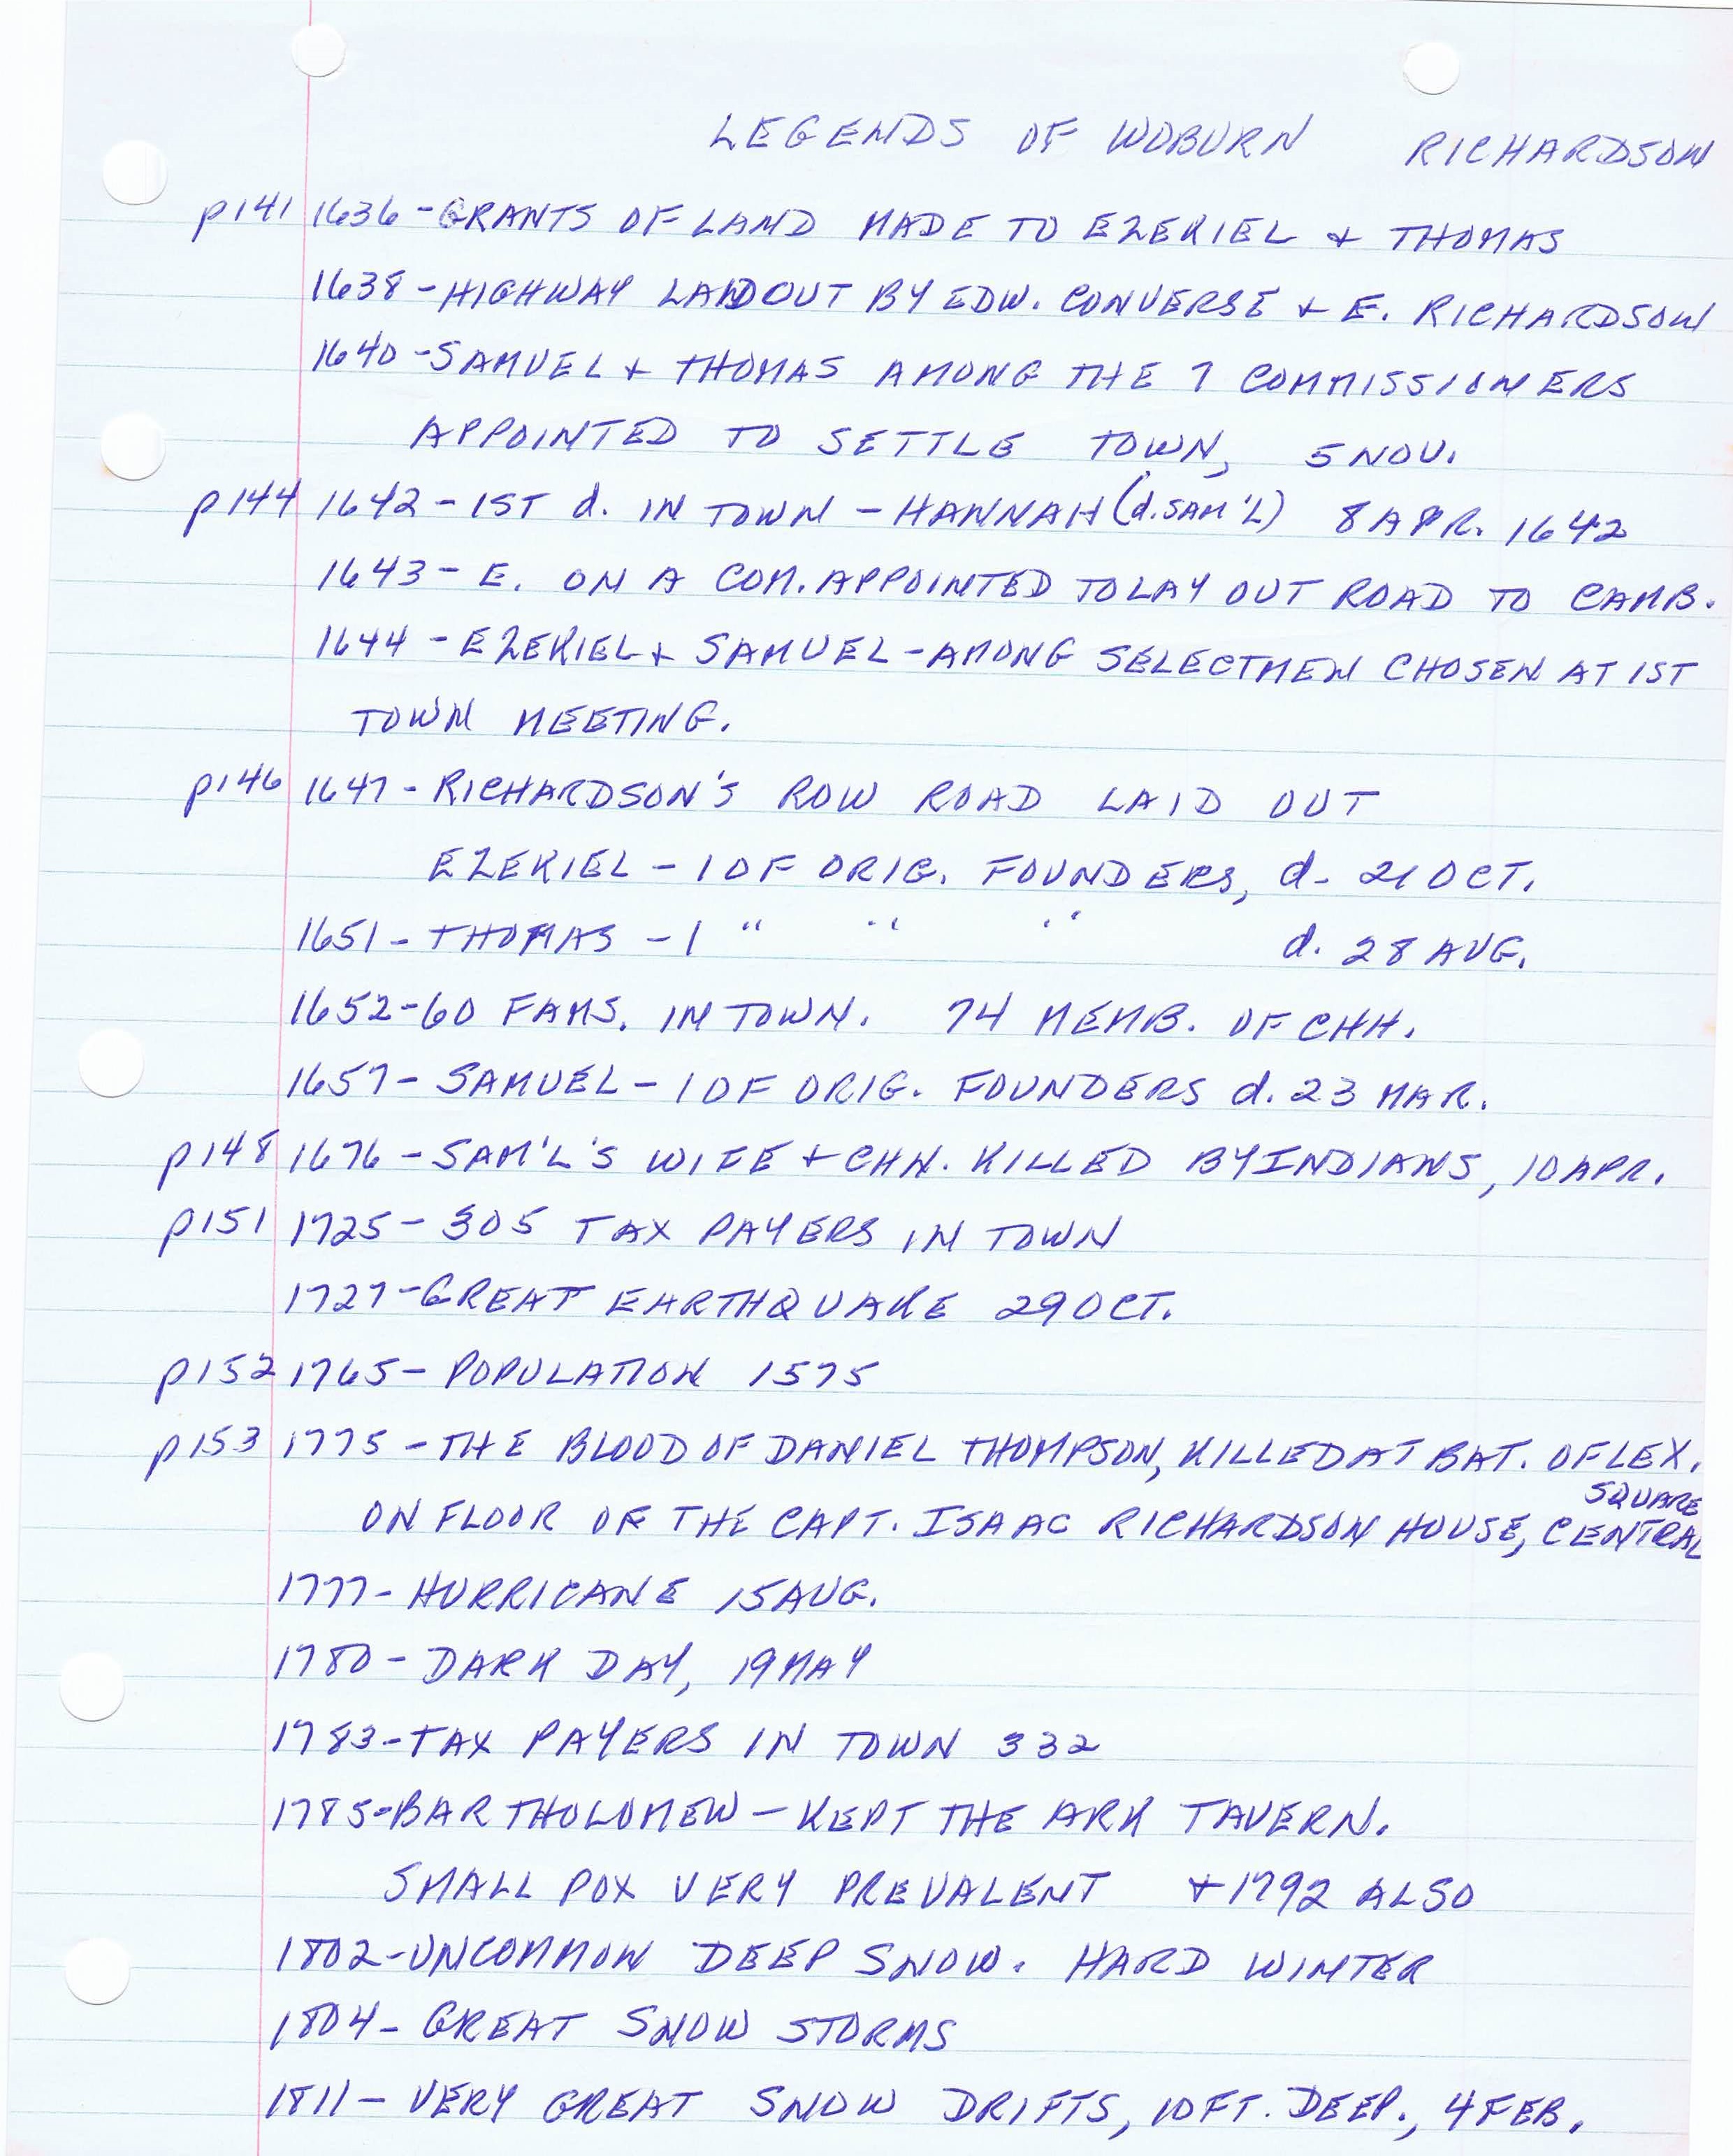 LEGENDS OF WOBURN RICHARDSON
p141 1636-GRANTS OF LAND MADE TO EZEKIEL + THOMAS
1638-HIGHWAY LAID OUT BY EDW. CONVERSE + E. RICHARDSON
1640-SAMUEL + THOMAS AMONG THE 7 COMMISSIONERS
APPOINTED TO SETTLE TOWN, 5 NOV.
p144 1642-1ST d. IN TOWN - HANNAH (d. SAM'L) 8 APR. 1642
1643-E. ON A COM. APPOINTED TO LAY OUT ROAD TO CAMB.
1644-EZEKIEL + SAMUEL-AMONG SELECTMEN CHOSEN AT 1ST
TOWN MEETING.
p146 1647-RICHARDSON'S ROW ROAD LAID OUT
EZEKIEL-1 OF ORIG. FOUNDERS, d- 21 OCT.
1651-THOMAS-1 " " " d. 28 AUG.
1652-60 FAMS. IN TOWN. 74 MEMB. OF CHH.
1657-SAMUEL-1 OF ORIG. FOUNDERS d. 23 MAR.
p148 1676-SAM'L'S WIFE + CHN. KILLED BY INDIANS, 10 APR.
p151 1725-305 TAX PAYERS IN TOWN
1727-GREAT EARTHQUAKE 29 OCT.
p152 1765-POPULATION 1575
p153 1775-THE BLOOD OF DANIEL THOMPSON, KILLED AT BAT. OF LEX.
SQUARE
ON FLOOR OF THE CAPT. ISAAC RICHARDSON HOUSE, CENTRAL
1777-HURRICANE 15 AUG.
1780-DARK DAY, 19 MAY
1783-TAX PAYERS IN TOWN 332
1785-BARTHOLOMEW-KEPT THE ARK TAVERN.
SMALL POX VERY PREVALENT +1792 ALSO
1802-UNCOMMON DEEP SNOW. HARD WINTER
1804-GREAT SNOW STORMS
1811-VERY GREAT SNOW DRIFTS, 10 FT. DEEP., 4 FEB.